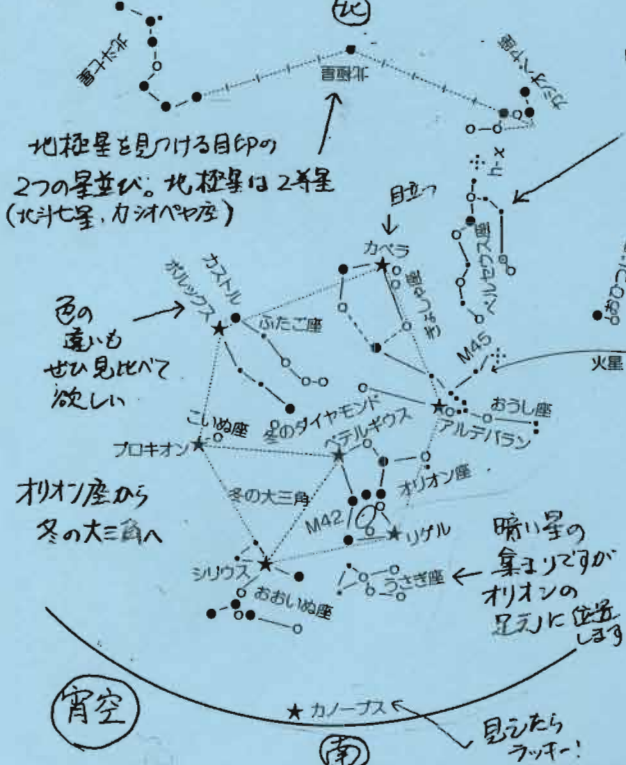 北
北斗七星
北極星
カシオペヤ座
地極星を見つける目印の
2つの星並び。地極星は2等星
(北斗七星、カシオペヤ座)
h-χ
ペルセウス座
目立つ
カペラ
ぎょしゃ座
カストル
ポルックス
ふたご座
色の
違いも
ぜひ見比べて
欲しい
M45
火星
おうし座
アルデバラン
冬のダイヤモンド
こいぬ座
プロキオン
ベテルギウス
オリオン座
オリオン座から
冬の大三角へ
冬の大三角
M42
リゲル
シリウス
おおいぬ座
うさぎ座
暗い星の
集まりですが
オリオンの
足元に位置
します
宵空
カノープス
見えたら
ラッキー!
南